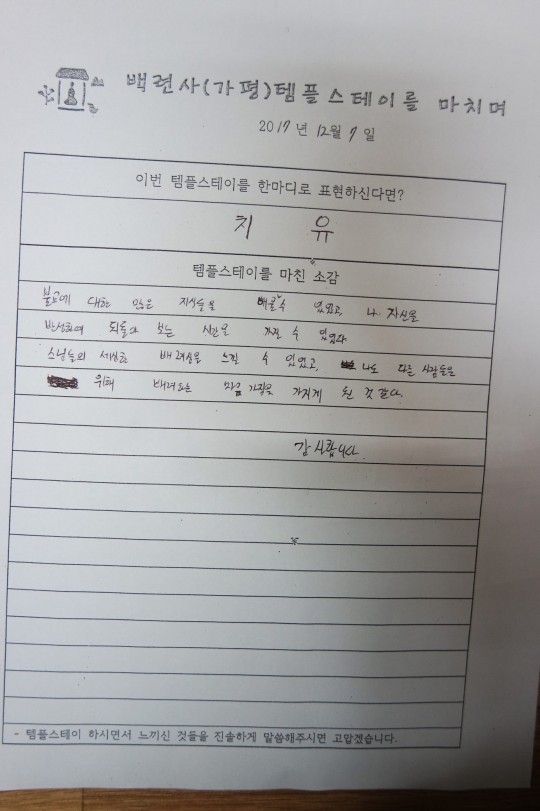 백련사(가평)템플스테이를 마치며
2017년 12월 7일
이번 템플스테이를 한마디로 표현하신다면?
치 유
템플스테이를 마친 소감
불교에 대한 많은 지식들을 배울 수 있었고, 나 자신을
반성하며 되돌아 보는 시간을 가질 수 있었다.
스님들의 세심한 배려심을 느낄 수 있었고, 나도 다른 사람들을
위해 배려하는 마음가짐을 가지게 된 것 같다.
감사합니다.
- 템플스테이 하시면서 느끼신 것들을 진솔하게 말씀해주시면 고맙겠습니다.